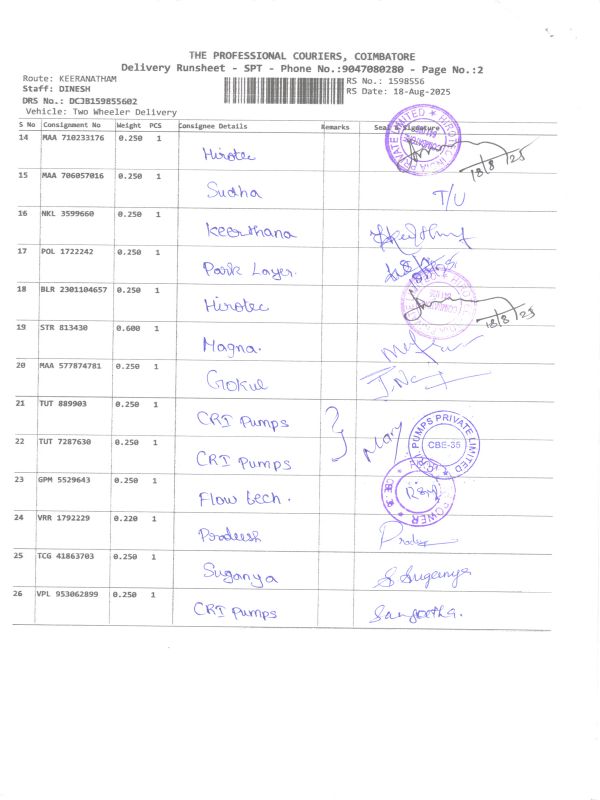 THE PROFESSIONAL COURIERS, COIMBATORE
Delivery Runsheet - SPT - Phone No.:9047080280 - Page No.:2
Route: KEERANATHAM RS No.: 1598556
Staff: DINESH RS Date: 18-Aug-2025
DRS No.: DCJB159855602
Vehicle: Two Wheeler Delivery
S No Consignment No Weight PCS Consignee Details Remarks Seal & Signature
14 MAA 710233176 0.250 1 Hirotec 18/8/25
15 MAA 706057016 0.250 1 Sudha T/U
16 NKL 3599660 0.250 1 Keerthana
17 POL 1722242 0.250 1 Park Layer.
18 BLR 2301104657 0.250 1 Hirotec 18/8/25
19 STR 813430 0.600 1 Magna.
20 MAA 577874781 0.250 1 Gokul
21 TUT 889903 0.250 1 CRI Pumps
22 TUT 7287630 0.250 1 CRI Pumps Mary PUMPS PRIVATE LIMITED CBE-35
23 GPM 5529643 0.250 1 Flow tech.
24 VRR 1792229 0.220 1 Pradeesh
25 TCG 41863703 0.250 1 Suganya S Suganya
26 VPL 953062899 0.250 1 CRI Pumps Sangeetha.